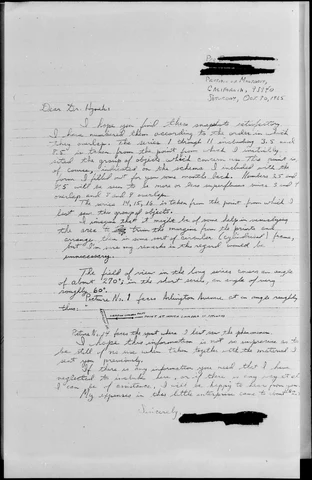 CALIFORNIA, 93940
SATURDAY, OCT 30, 1965
Dear Dr. Hynek:
I hope you find these snapshots satisfactory.
I have numbered them according to the order in which
they overlap. The series 1 through 11 including 3.5 and
7.5 is taken from the point from which I initially
sited the group of objects which concern us. This point is,
of course, indicated on the schema I included with the
form I filled out for you some months back. Numbers 3.5 and
7.5 will be seen to be more or less superfluous since 3 and 4
overlap and 7 and 8 overlap.
The series 14, 15, 16 is taken from the point from which I
last saw the group of objects.
I imagine that it might be of some help in visualizing
the area to trim the margins from the prints and
arrange them in some sort of circular (cylindrical) frame,
but I'm sure my remarks in this regard would be
unnecessary.
The field of view in the long series covers an angle
of about 270°; in the short series, an angle of very
roughly 60°.
Picture No. 1 faces Arlington Avenue at an angle roughly
thus:
POINT AT WHICH CAMERA IS POINTED
Picture No. 14 faces the spot where I last saw the phenomenon.
I hope this information is not too imprecise as to
be still of no use when taken together with the material I
sent you previously.
If there is any information you need that I have
neglected to include here, or if there is any way at all
I can be of assistance, I will be happy to hear from you.
My expenses in this little enterprise came to
Sincerely,